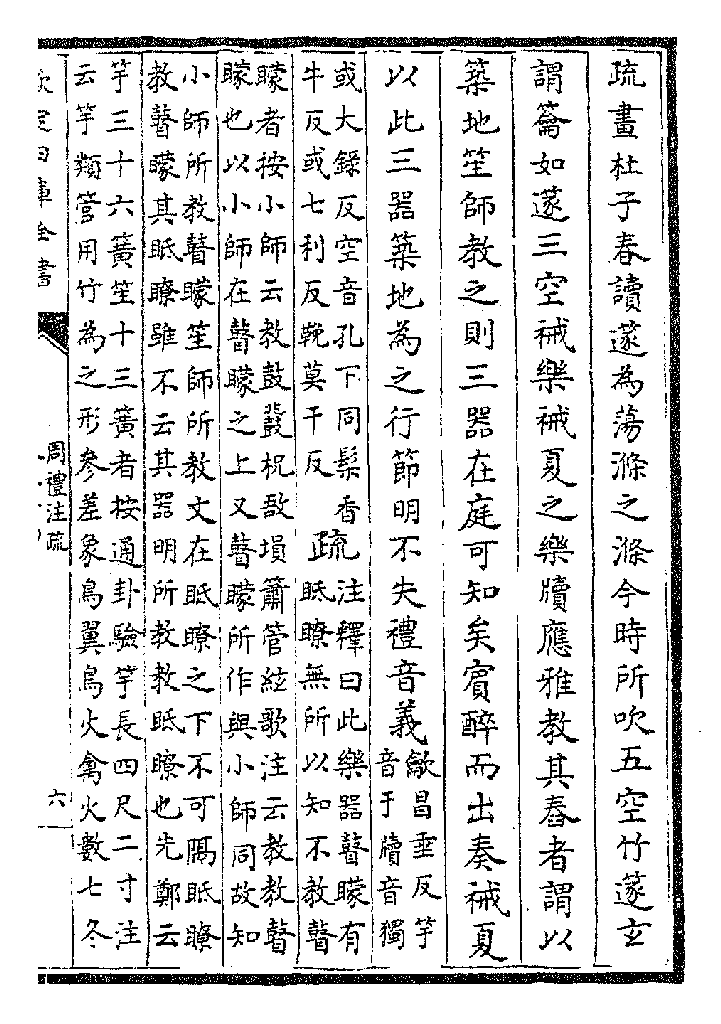 疏畫杜子春讀篴為蕩滌之滌今時所吹五空竹篴玄
謂籥如篴三空祴樂祴夏之樂牘應雅教其舂者謂以
築地笙師教之則三器在庭可知矣賓醉而出奏祴夏
以此三器築地為之行節明不失禮音義
龡昌垂反竽
音于牘音獨
或大錄反空音孔下同髹香
牛反或七利反鞔莫干反
疏
注釋曰此樂器瞽矇有
眡瞭無所以知不教瞽
矇者按小師云教鼓鼗柷敔塤簫管絃歌注云教教瞽
矇也以小師在瞽矇之上又瞽矇所作與小師同故知
小師所教瞽矇笙師所教文在眡瞭之下不可隔眡瞭
教瞽矇其眡瞭雖不云其器明所教教眡瞭也先鄭云
竽三十六簧笙十三簧者按通卦驗竽長四尺二寸注
云竽類管用竹為之形參差象鳥翼鳥火禽火數七冬
欽定四庫全書
周禮注疏
六